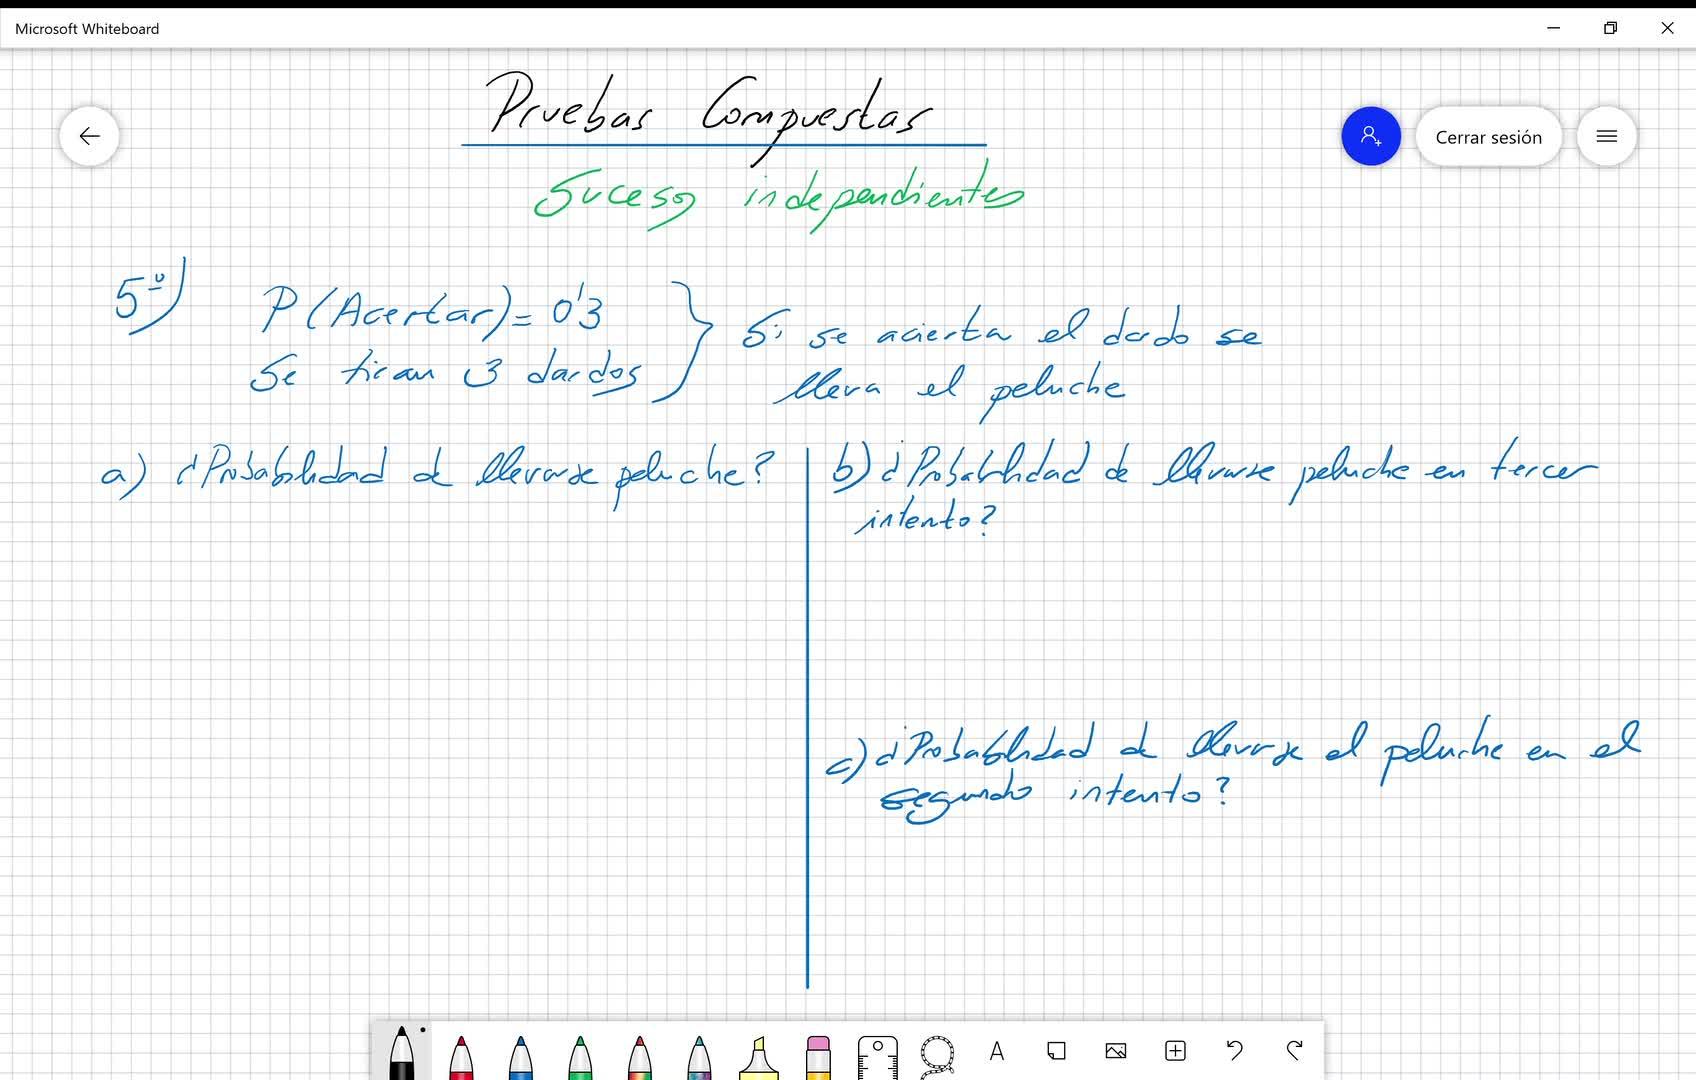 Microsoft Whiteboard
Pruebas Compuestas
Cerrar sesión
Suceso independientes
5º)
P(Acertar) = 0'3
Se tiran 3 dardos
Si se acierta el dardo se
lleva el peluche
a) ¿Probabilidad de llevarse peluche?
b) ¿Probabilidad de llevarse peluche en tercer
intento?
c) ¿Probabilidad de llevarse el peluche en el
segundo intento?